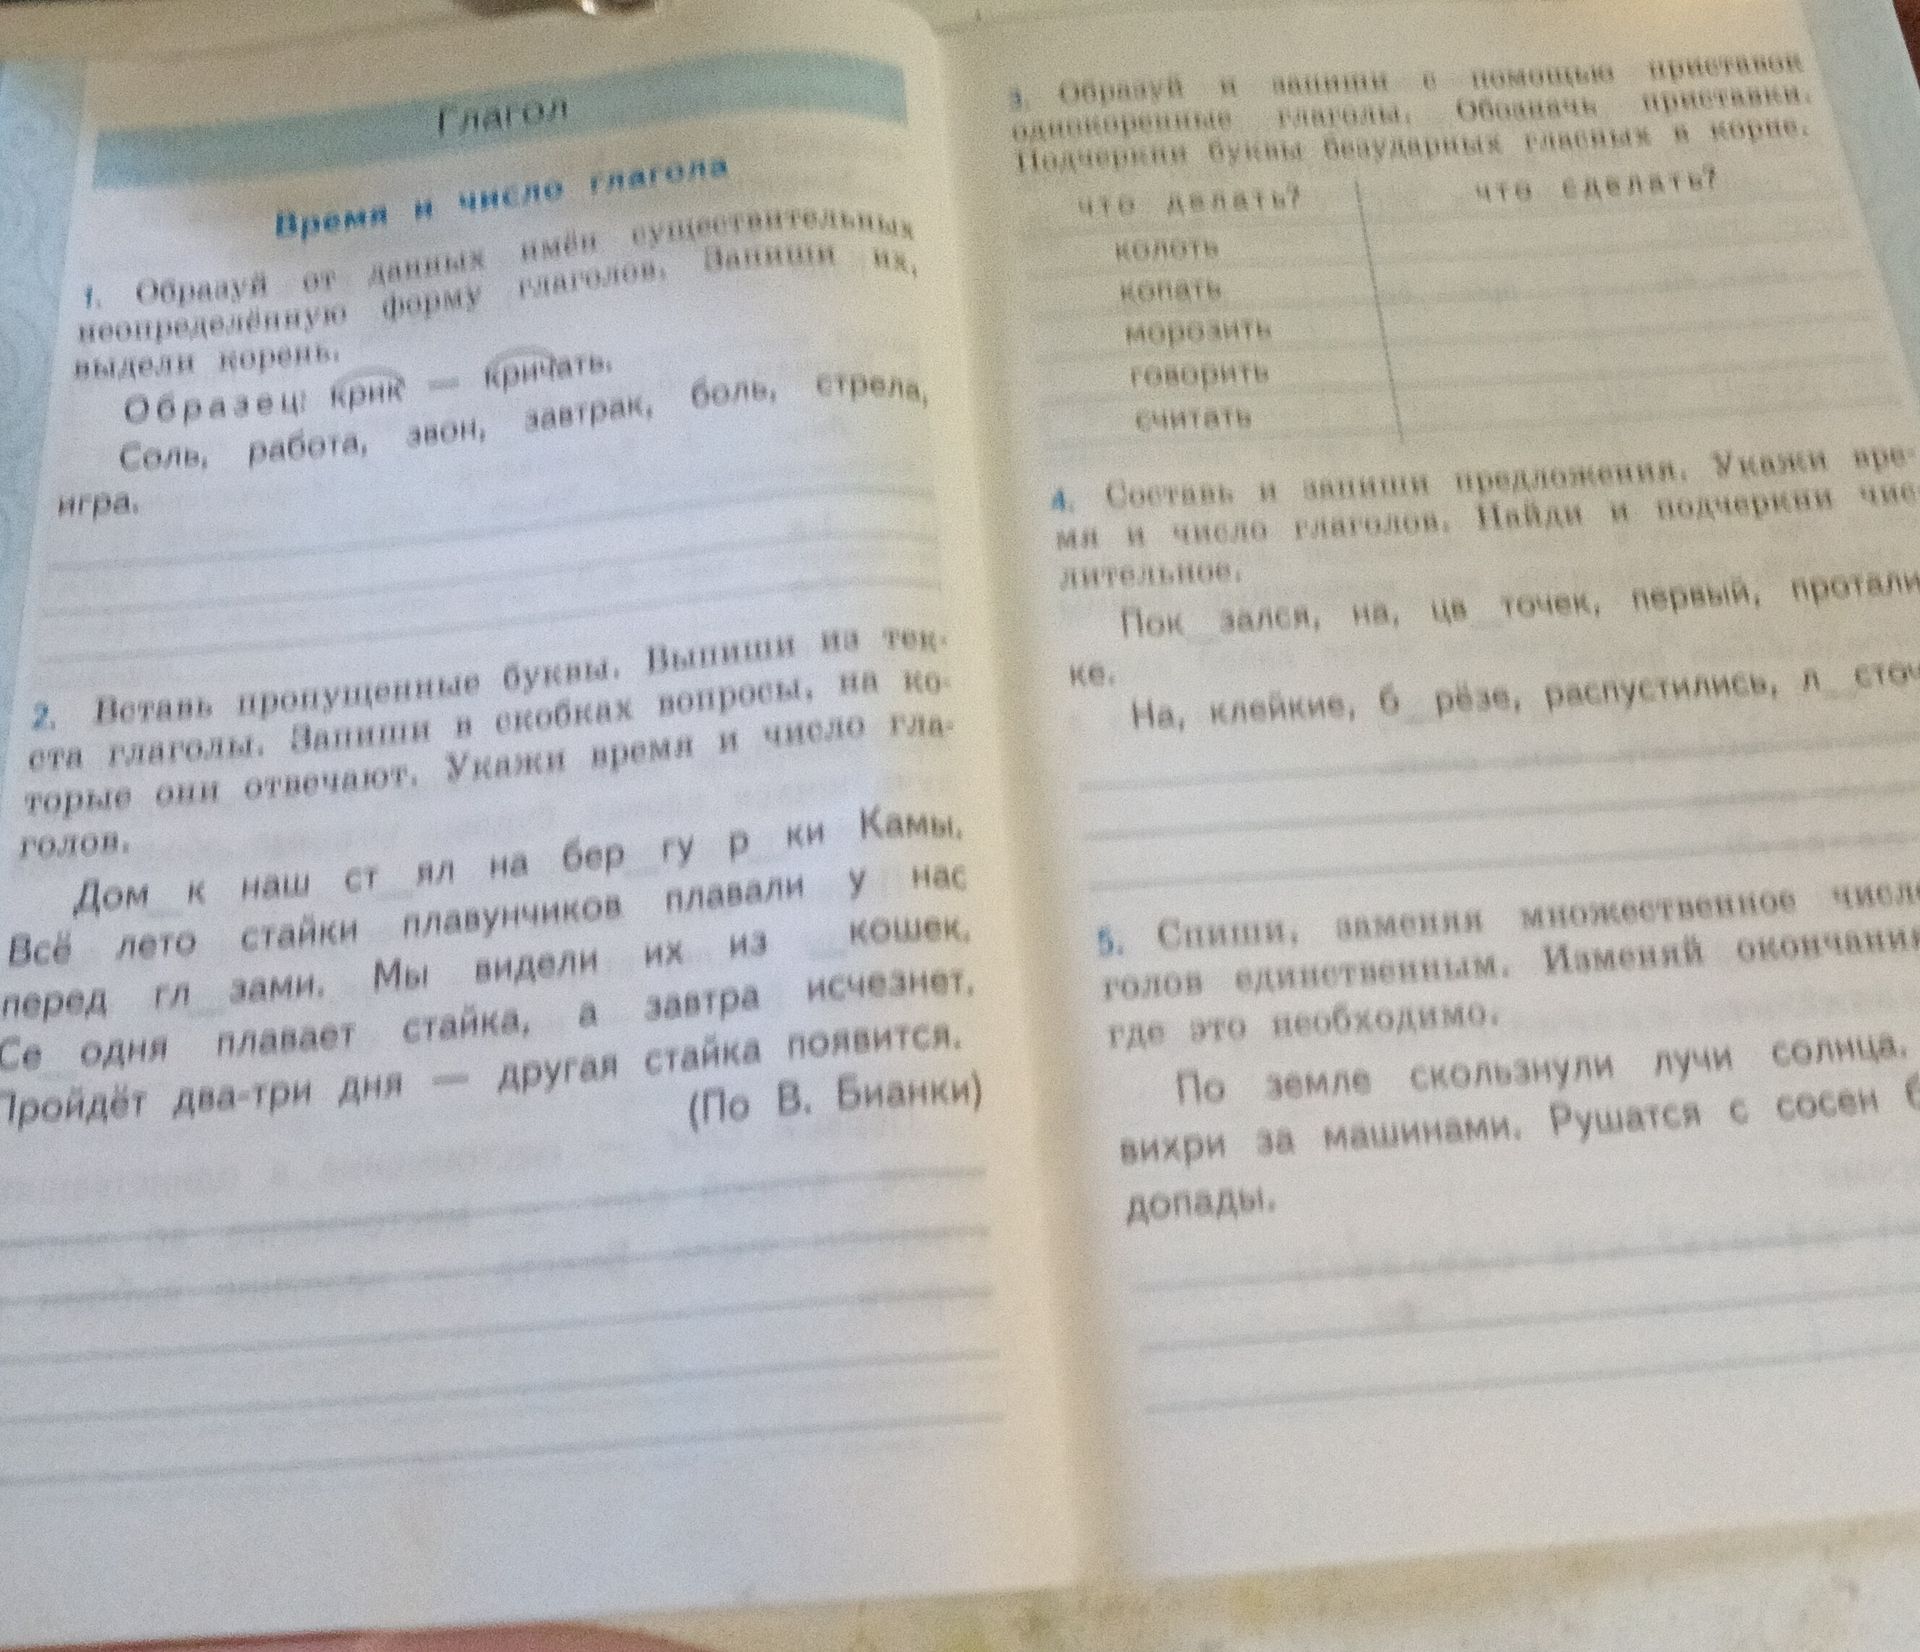 Глагол
Время и число глагола
1. Образуй от данных имён существительных
неопределённую форму глаголов. Запиши их,
выдели корень.
Образец: крик — кричать.
Соль, работа, звон, завтрак, боль, стрела,
игра.
2. Вставь пропущенные буквы. Выпиши из тек-
ста глаголы. Запиши в скобках вопросы, на ко-
торые они отвечают. Укажи время и число гла-
голов.
Дом_к наш ст_ял на бер_гу р_ки Камы.
Всё лето стайки плавунчиков плавали у нас
перед гл_зами. Мы видели их из _кошек.
Се_одня плавает стайка, а завтра исчезнет.
Пройдёт два-три дня — другая стайка появится.
(По В. Бианки)
3. Образуй и запиши с помощью приставок
однокоренные глаголы. Обозначь приставки.
Подчеркни буквы безударных гласных в корне.
что делать? что сделать?
колоть
копать
морозить
говорить
считать
4. Составь и запиши предложения. Укажи вре-
мя и число глаголов. Найди и подчеркни чис
лительное.
Пок_зался, на, цв_точек, первый, протали
ке.
На, клейкие, б_рёзе, распустились, л_сточ
5. Спиши, заменяя множественное число
голов единственным. Изменяй окончания
где это необходимо.
По земле скользнули лучи солнца.
вихри за машинами. Рушатся с сосен
допады.